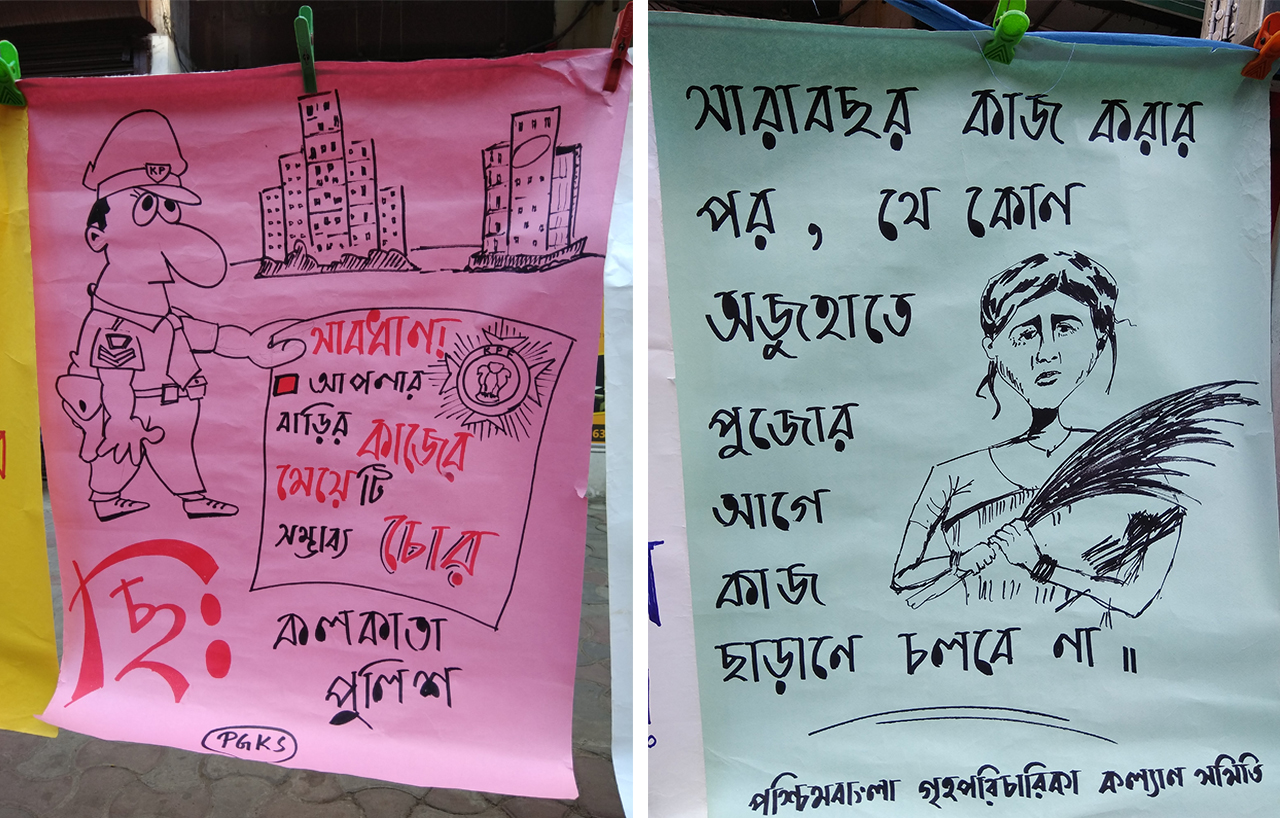 KP
সাবধান!
KPF
আপনার
বাড়ির কাজের
মেয়েটি
সম্ভাব্য চোর
ছিঃ
কলকাতা
পুলিশ
PGKS
63
সারাবছর কাজ করার
পর, যে কোন
অজুহাতে
পুজোর
আগে
কাজ
ছাড়ানো চলবে না॥
পশ্চিমবাংলা গৃহপরিচারিকা কল্যান সমিতি